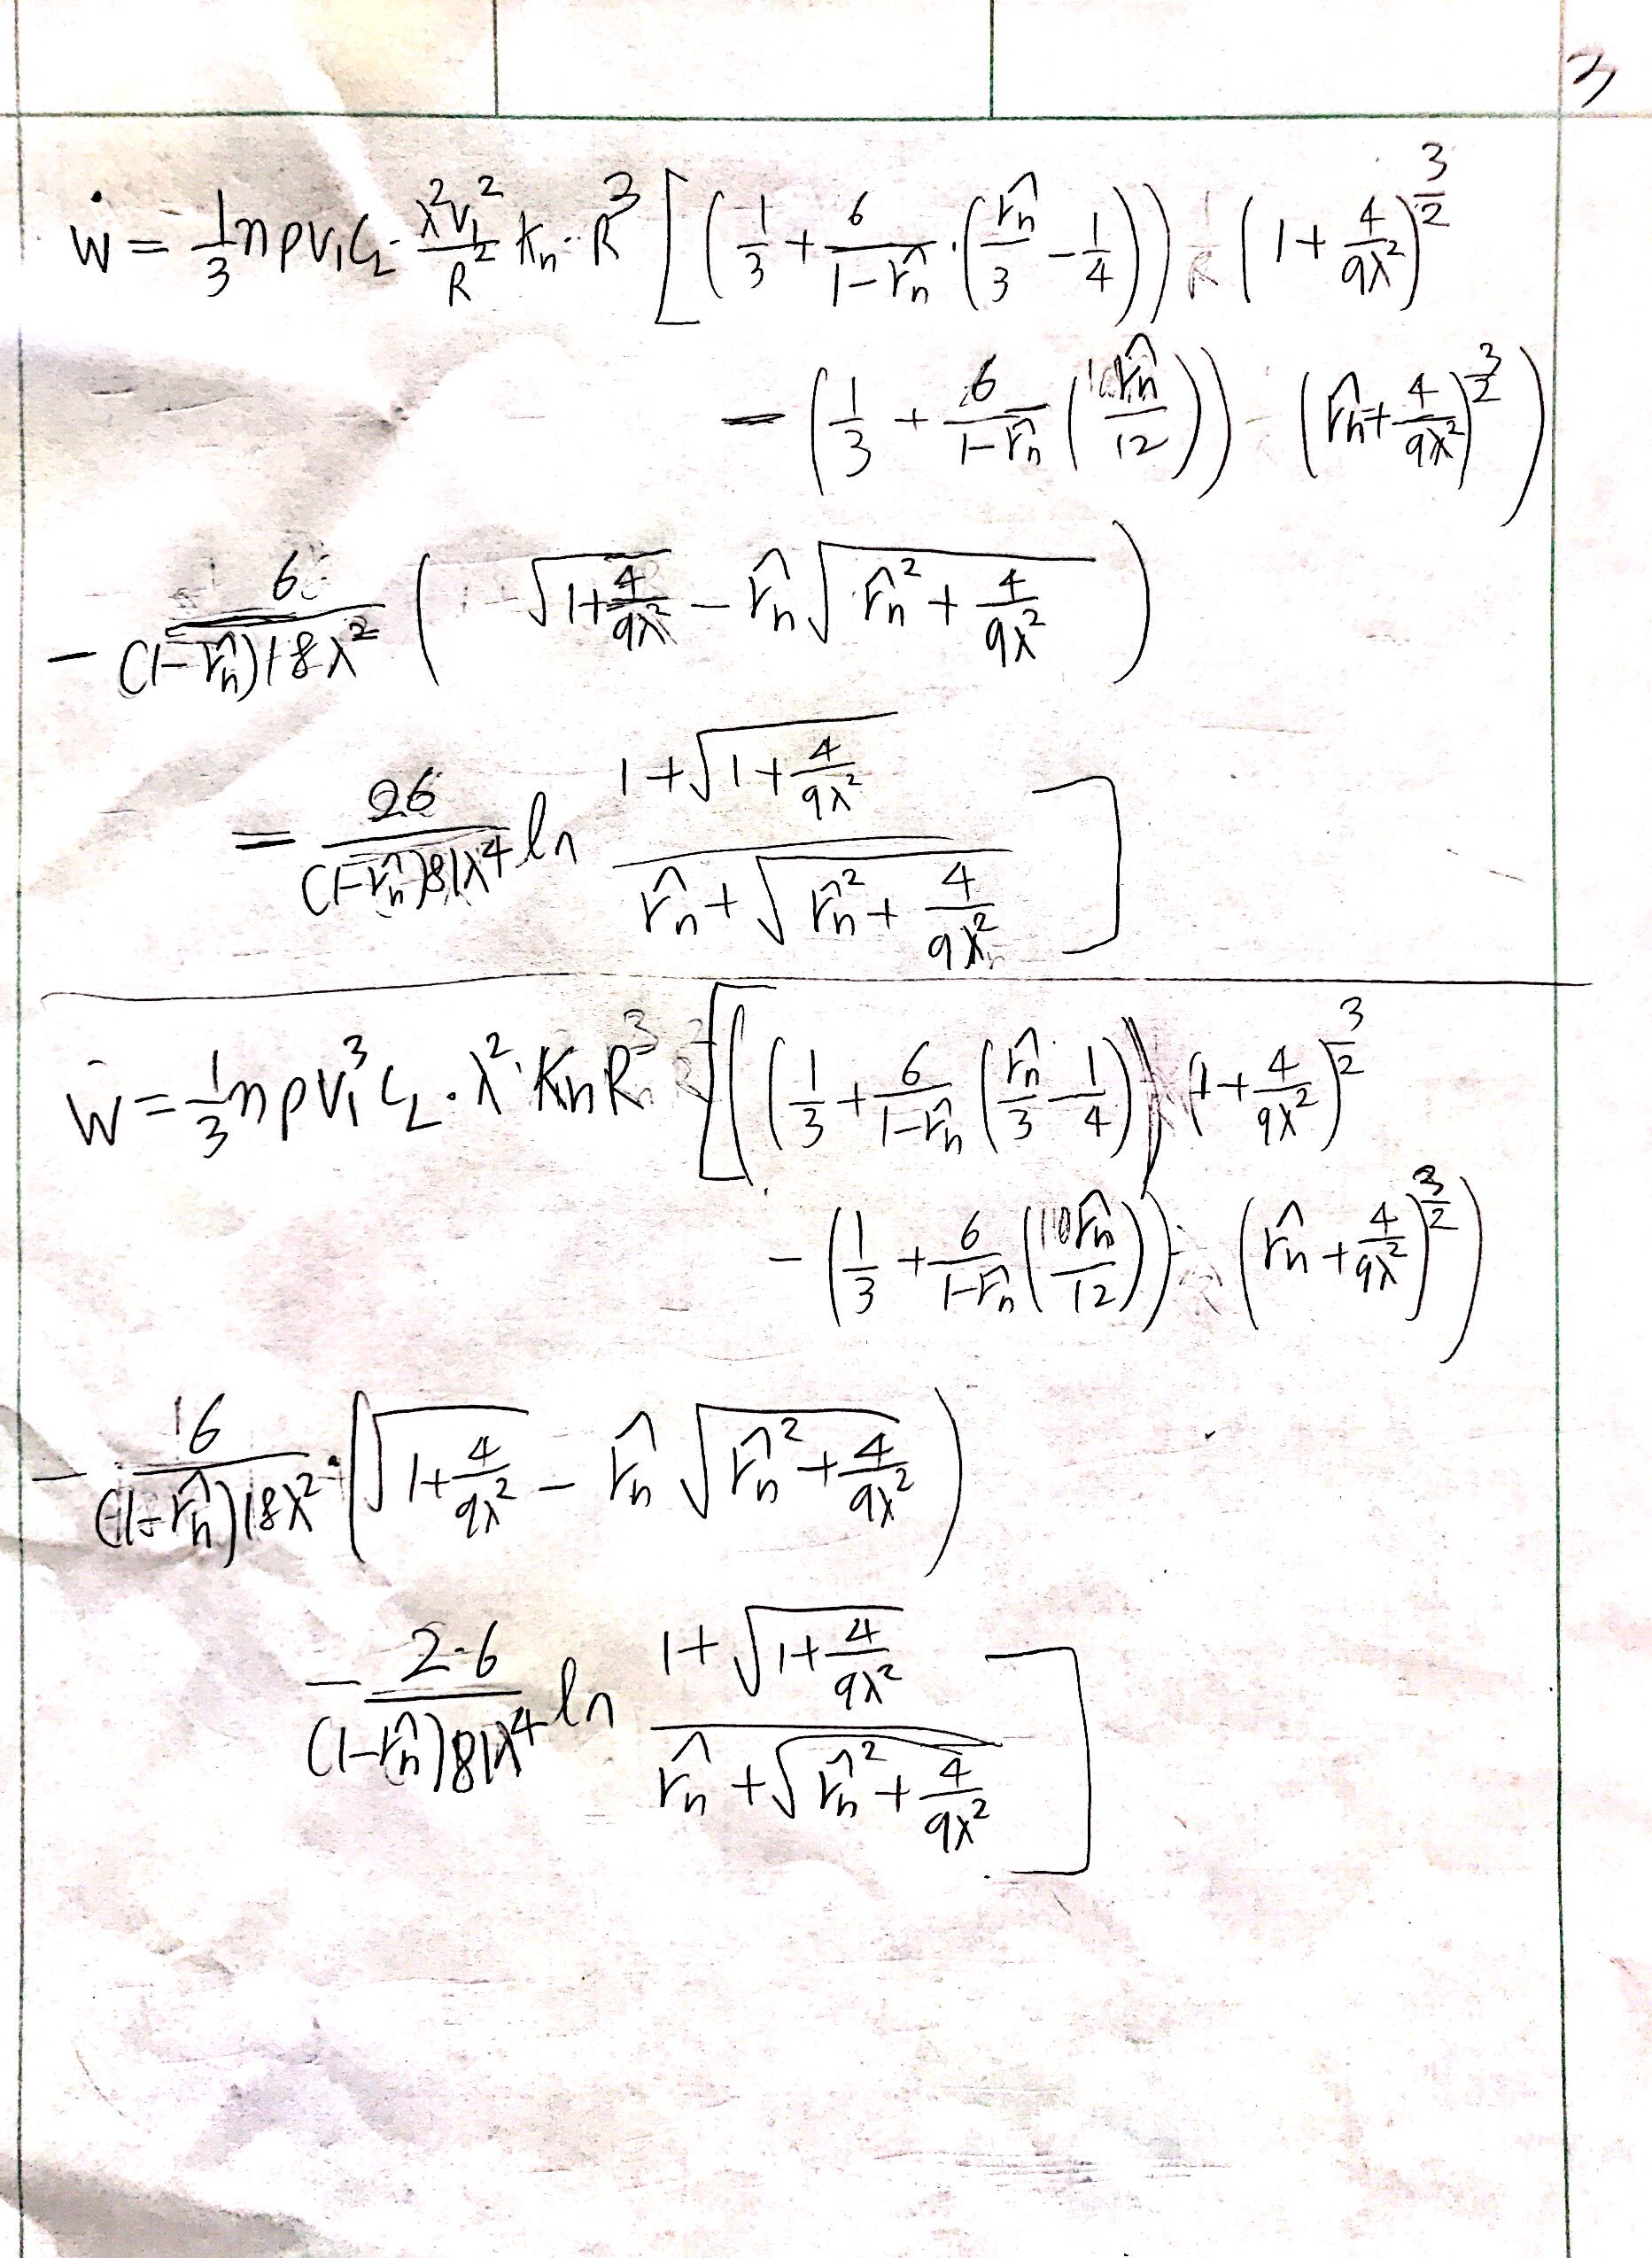 3
Ẇ = 1/3 n ρ v₁ C_L · λ²v₁²/R² K_n · R³ [ ( 1/3 + 6/(1-r̂_n) · ( r̂_n/3 - 1/4 ) ) ( 1 + 4/9λ² )^(3/2)
- ( 1/3 + 6/(1-r̂_n) ( r̂_n/12 ) ) ( r̂_n + 4/9λ² )^(3/2) )
- 6/((1-r̂_n)18λ²) ( √(1 + 4/9λ²) - r̂_n √(r̂_n² + 4/9λ²) )
= 26/((1-r̂_n)81λ⁴) ln (1 + √(1 + 4/9λ²))/(r̂_n + √(r̂_n² + 4/9λ²)) ]
Ẇ = 1/3 n ρ v₁³ C_L · λ² · K_n R³ [ ( ( 1/3 + 6/(1-r̂_n) ( r̂_n/3 - 1/4 ) ) ( 1 + 4/9λ² )^(3/2)
- ( 1/3 + 6/(1-r̂_n) ( 10r̂_n/12 ) ) ( r̂_n + 4/9λ² )^(3/2) )
- 16/((1-r̂_n)18λ²) · ( √(1 + 4/9λ²) - r̂_n √(r̂_n² + 4/9λ²) )
- 2·6/((1-r̂_n)81λ⁴) ln (1 + √(1 + 4/9λ²))/(r̂_n + √(r̂_n² + 4/9λ²)) ]